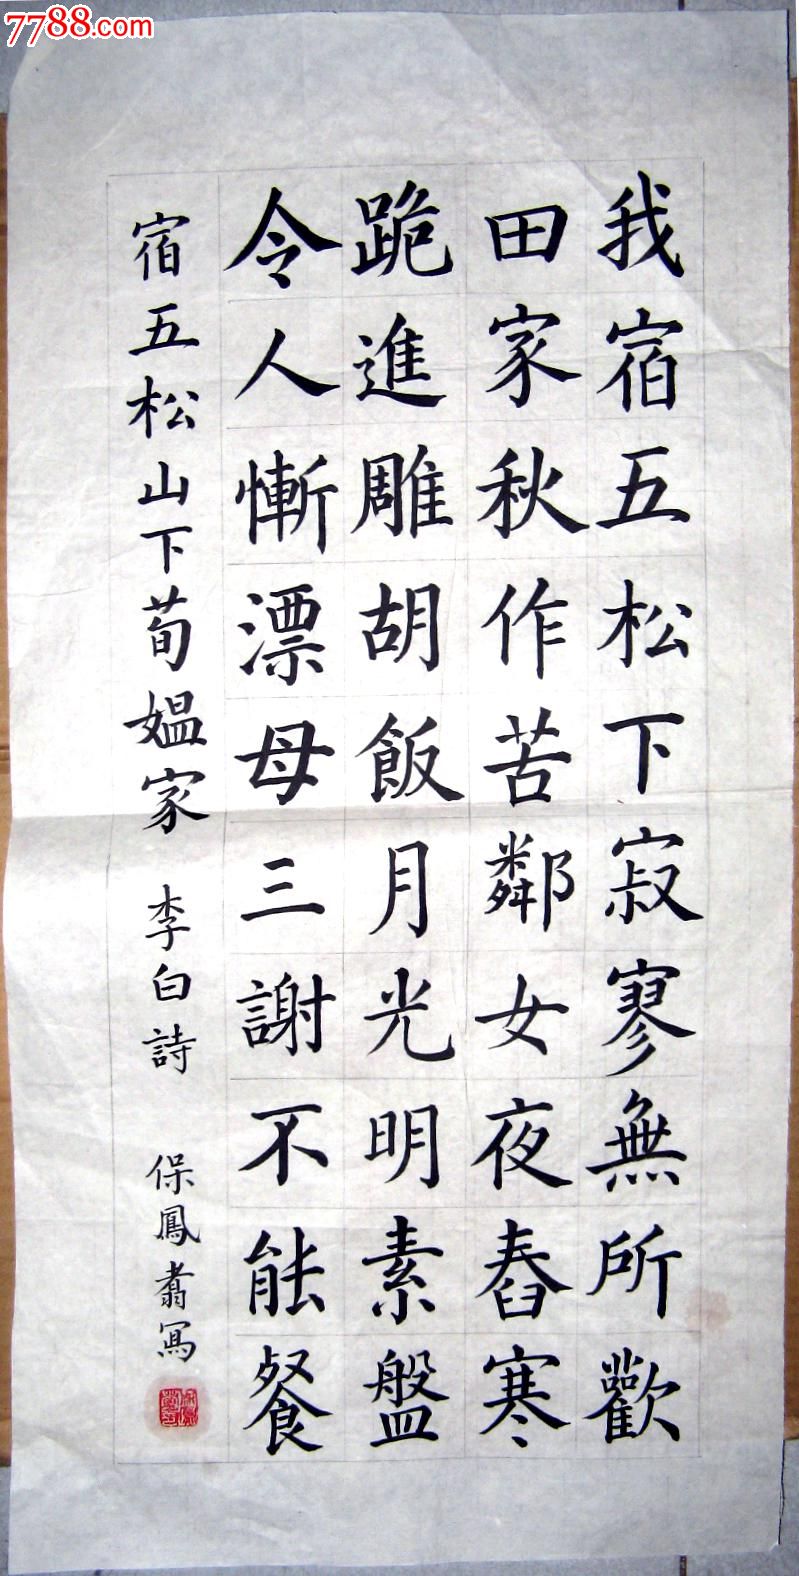 7788.com
我宿五松下寂寥無所歡
田家秋作苦鄰女夜舂寒
跪進雕胡飯月光明素盤
令人慚漂母三謝不能餐
宿五松山下荀媼家 李白詩 保鳳翥寫